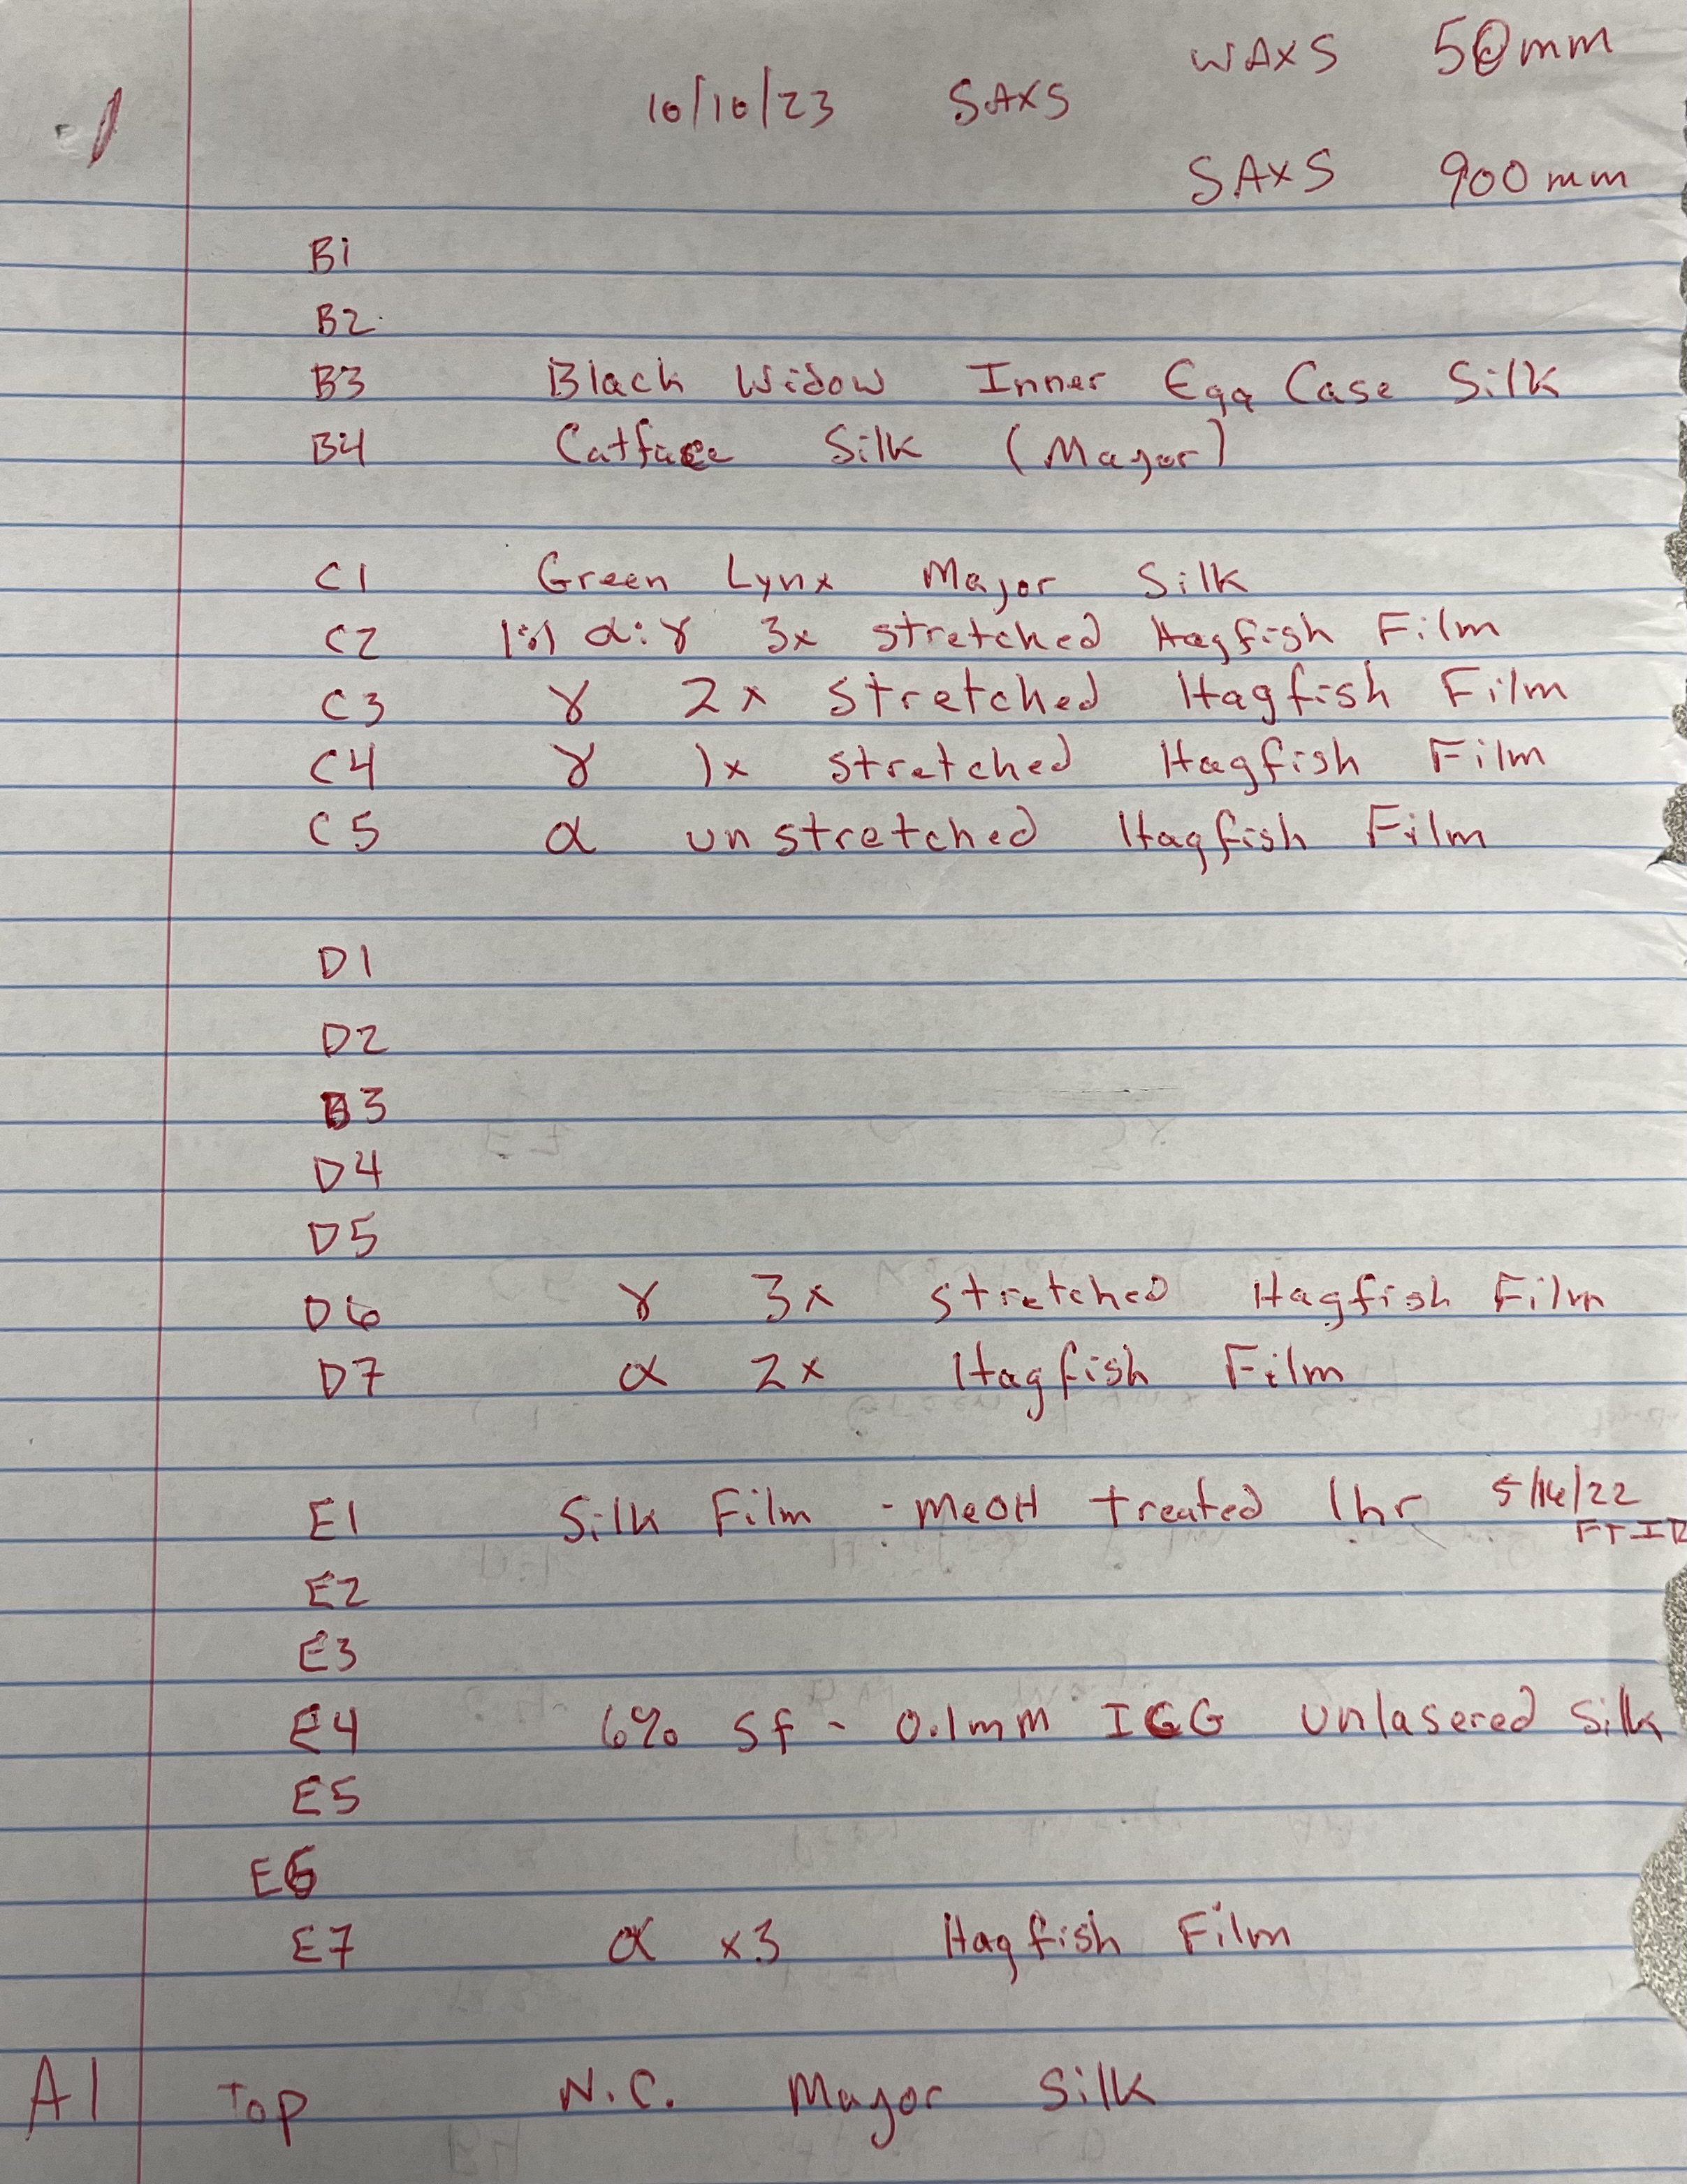 WAXS 50mm
10/10/23 SAXS
SAXS 900mm
B1
B2
B3 Black Widow Inner Egg Case Silk
B4 Catface Silk (Major)
C1 Green Lynx Major Silk
C2 1:1 α:γ 3x stretched Hagfish Film
C3 γ 2x stretched Hagfish Film
C4 γ 1x stretched Hagfish Film
C5 α unstretched Hagfish Film
D1
D2
D3
D4
D5
D6 γ 3x stretched Hagfish Film
D7 α 2x Hagfish Film
E1 Silk Film - MeOH treated 1hr 5/16/22
FTIR
E2
E3
E4 6% SF - 0.1mm ICG unlasered silk
E5
E6
E7 α x3 Hagfish Film
A1 Top N.C. Major Silk